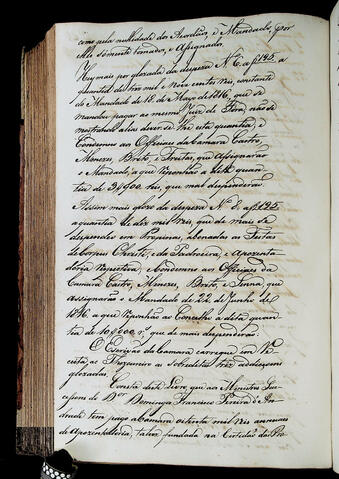 como nula nullidade dos Acordãos, e Mandado, por
Elle sómente tomado, e Assignado.
Hey mais por glozada da despeza N. 6. a f 125. a
quantia de tres mil e nove centos reis, constante
do Mandado de 18 de Mayo de 1816, que se
mandou pagar ao mesmo Juiz de Fóra, não se
mostrando alias dever se lhe esta quantia, e
Condemno aos Officiaes da Camara Castro,
Menezes, Brito, e Freitas, que Assignarão
o Mandado, a que reponhão a dita quan-
tia de 3$900 reis, que mal despenderão.
Assim mais glozo da despeza N. 8. a f 125
a quantia de dez mil reis, que de mais se
despendeo em Propinas, abonadas as Festas
de Corpus Christi, da Padroeira, e Apozenta-
doria respectiva, e Condemno aos Officiaes da
Camara Castro, Menezes, Brito, e Senna, que
assignarão o Mandado de 22 de Junho de
1816. a que reponhão ao Concelho a dita quan-
tia de 10$000 r.s, que de mais despenderão.
O Escrivão da Camara carregue em Re-
ceita ao Thezoureiro as sobreditas trez addicçoens
glozadas.
Consta deste Livro, que aos Ministros Suc-
cessores do D.or Domingos Francisco Pereira de An-
drade tem pago a Camara oitenta mil reis annuaes
de Apozentadoria, talvez fundada na Certidão da Pro